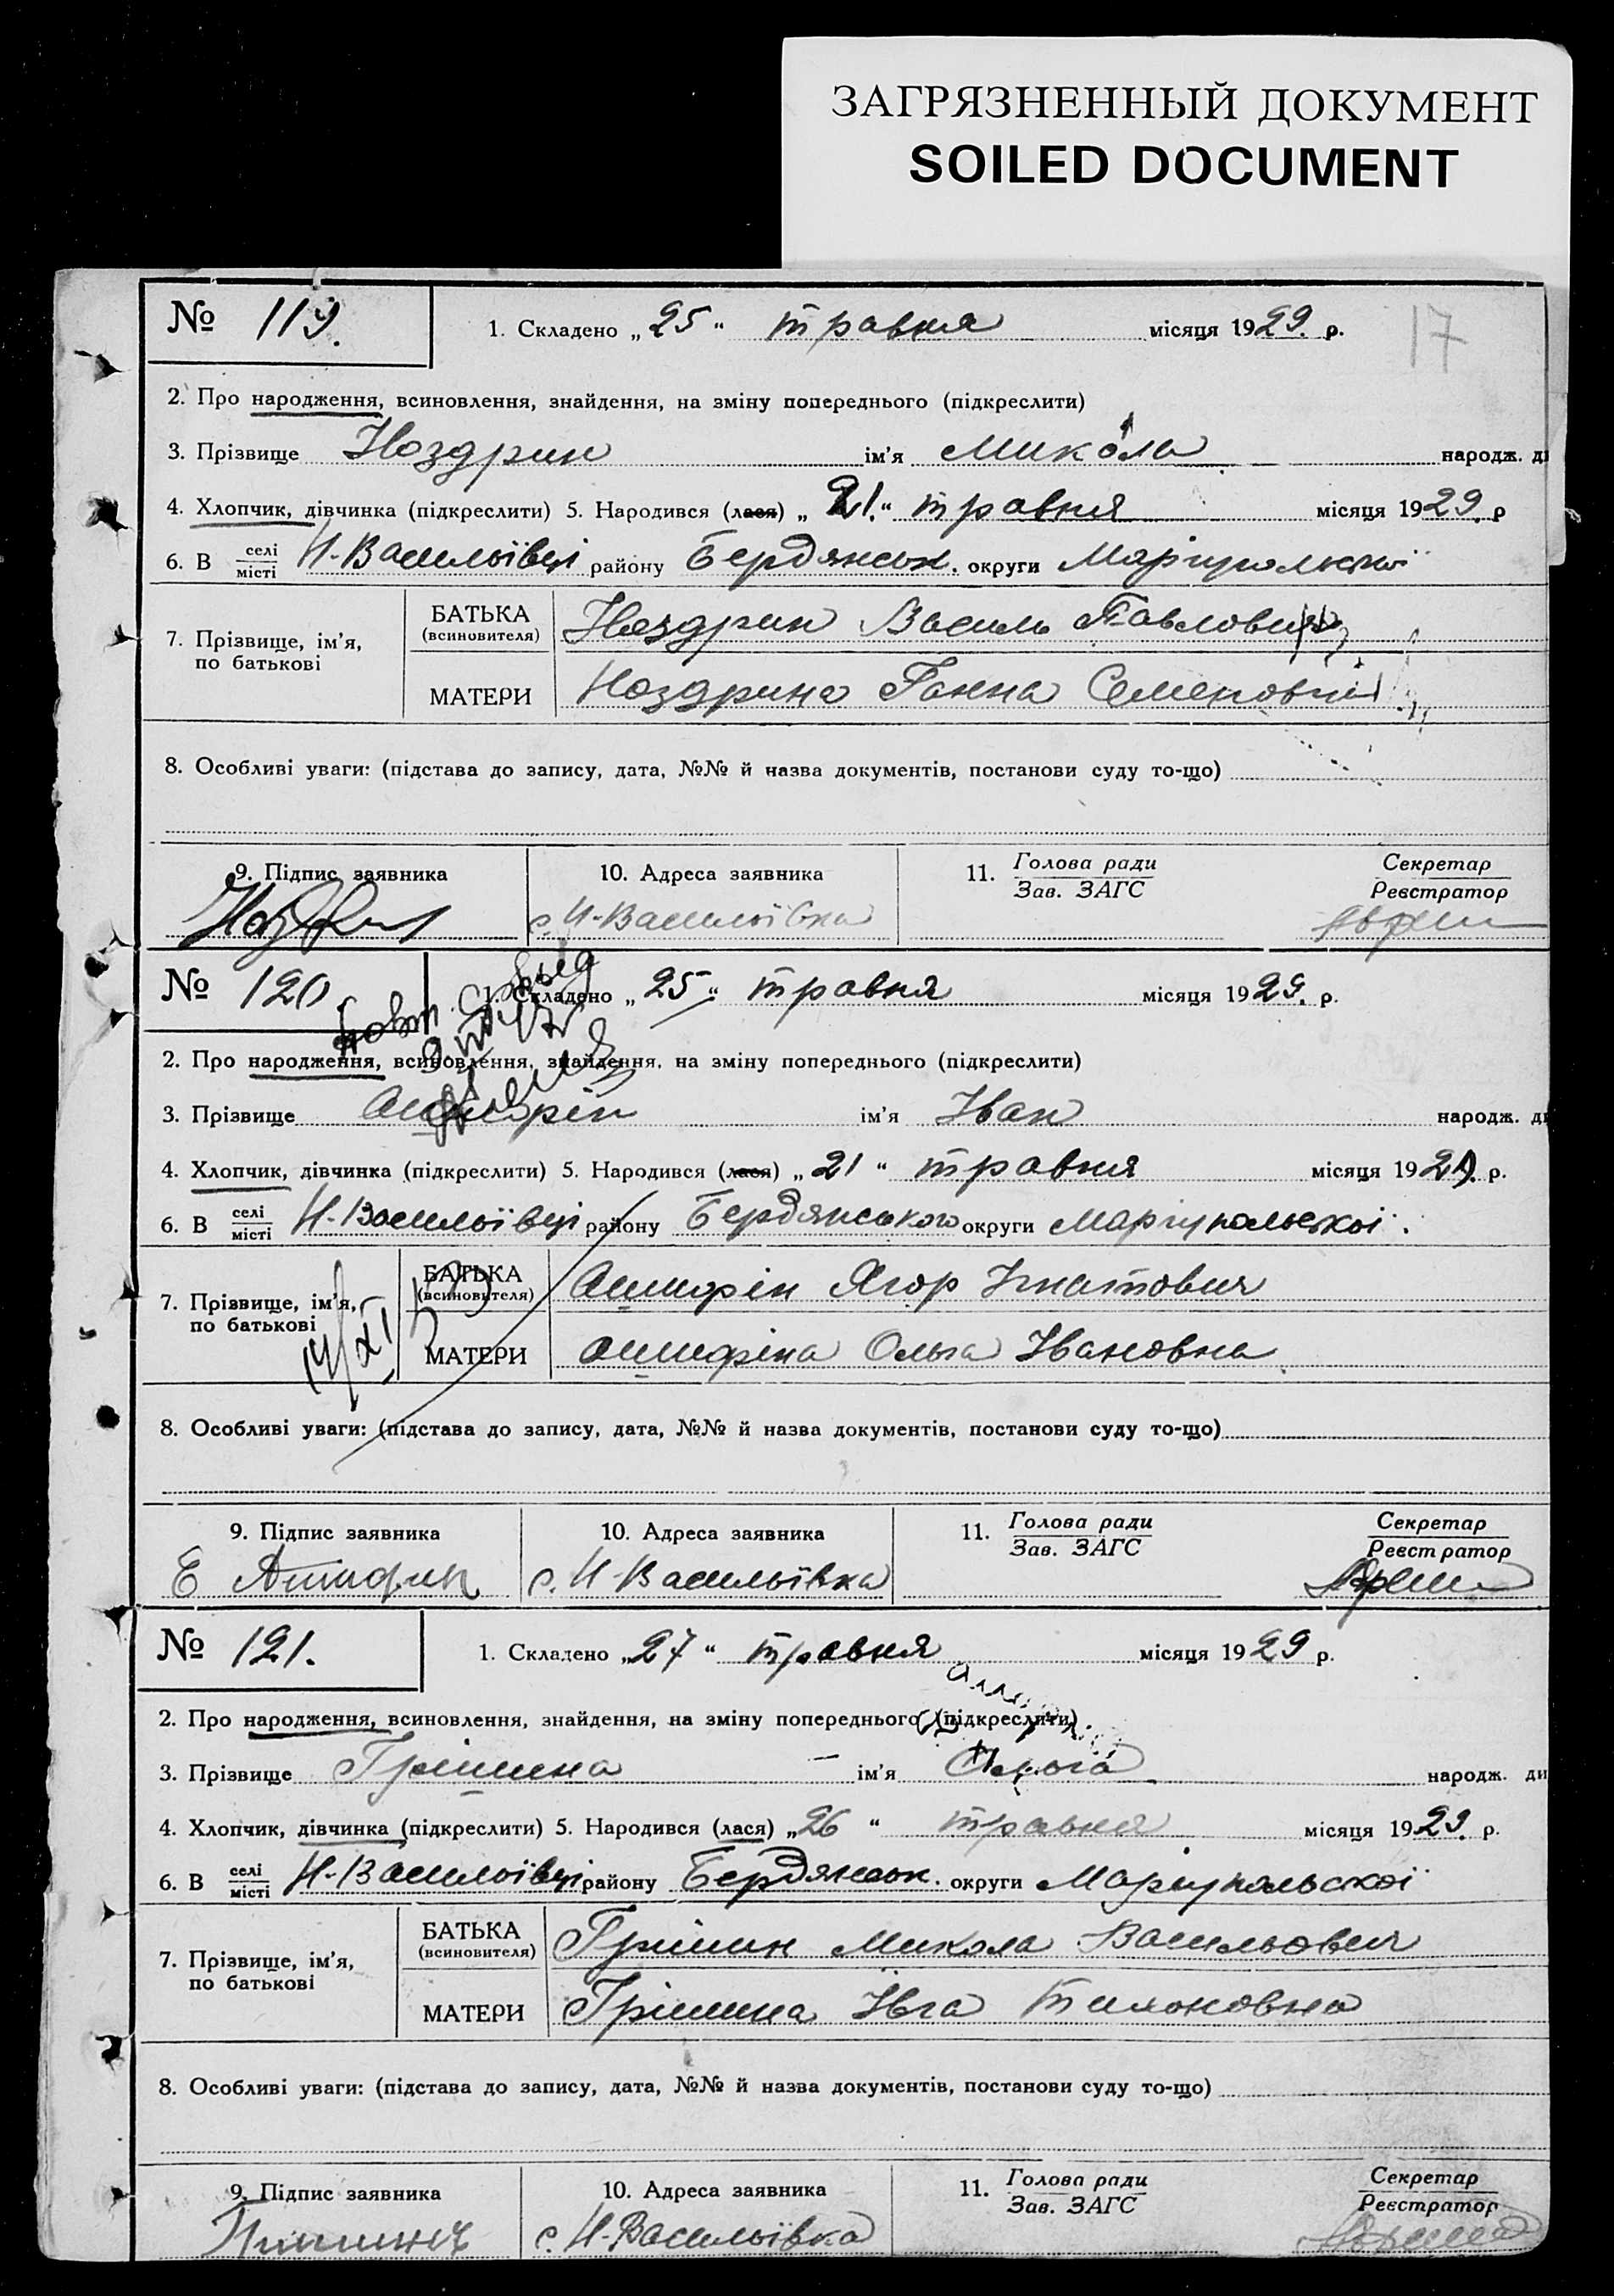 ЗАГРЯЗНЕННЫЙ ДОКУМЕНТ
SOILED DOCUMENT
17
№ 119. 1. Складено „25“ травня місяця 1929. р.
2. Про народження, всиновлення, знайдення, на зміну попереднього (підкреслити)
3. Прізвище Ноздрин ім'я Микола народж. ди
4. Хлопчик, дівчинка (підкреслити) 5. Народився (лася) „21.“ травня місяця 1929. р
6. В селі місті Н-Васильівці району Бердянськ. округи Маріупольської
7. Прізвище, ім'я, по батькові
БАТЬКА (всиновителя) Ноздрин Василь Павлович
МАТЕРИ Ноздрина Ганна Семеновна
8. Особливі уваги: (підстава до запису, дата, №№ й назва документів, постанови суду то-що)
9. Підпис заявника 10. Адреса заявника 11. Голова ради Зав. ЗАГС Секретар Реєстратор
с. Н-Васильівка
№ 120 1. Складено „25“ травня місяця 1929. р.
2. Про народження, всиновлення, знайдення, на зміну попереднього (підкреслити)
3. Прізвище ім'я Іван народж. ди
4. Хлопчик, дівчинка (підкреслити) 5. Народився (лася) „21“ травня місяця 1929. р.
6. В селі місті Н-Васильівці району Бердянського округи Маріупольської.
7. Прізвище, ім'я, по батькові
БАТЬКА (всиновителя) Ашифрін Ягор Ігнатович
МАТЕРИ Ашифріна Ольга Івановна
8. Особливі уваги: (підстава до запису, дата, №№ й назва документів, постанови суду то-що)
9. Підпис заявника 10. Адреса заявника 11. Голова ради Зав. ЗАГС Секретар Реєстратор
с. Н-Васильівка
№ 121. 1. Складено „27“ травня місяця 1929 р.
2. Про народження, всиновлення, знайдення, на зміну попереднього (підкреслити)
3. Прізвище Грішина ім'я Ольга народж. ди
4. Хлопчик, дівчинка (підкреслити) 5. Народився (лася) „26“ травня місяця 1929. р.
6. В селі місті Н-Васильівці району Бердянськ. округи Маріупольської
7. Прізвище, ім'я, по батькові
БАТЬКА (всиновителя) Грішин Микола Васильович
МАТЕРИ Грішина Івга Тихоновна
8. Особливі уваги: (підстава до запису, дата, №№ й назва документів, постанови суду то-що)
9. Підпис заявника 10. Адреса заявника 11. Голова ради Зав. ЗАГС Секретар Реєстратор
с. Н-Васильівка